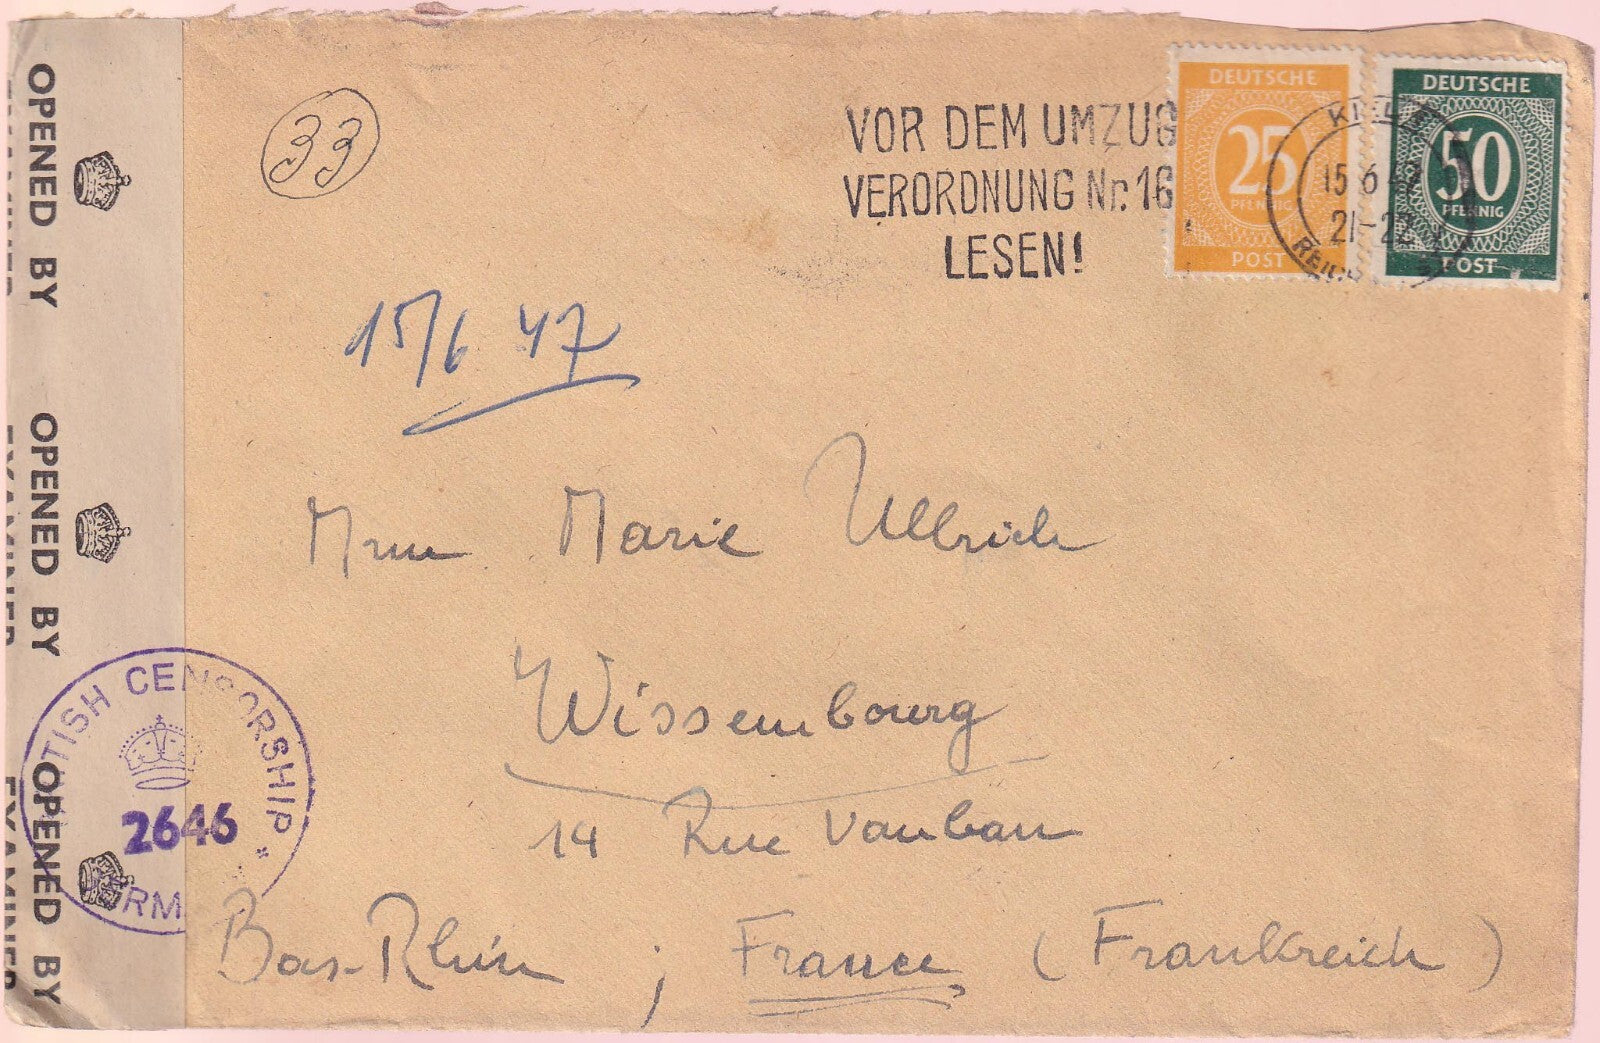 OPENED BY
EXAMINER
OPENED BY
EXAMINER
OPENED BY
EXAMINER
33
VOR DEM UMZUG
VERORDNUNG Nr. 16
LESEN!
DEUTSCHE
25
PFENNIG
POST
DEUTSCHE
50
PFENNIG
POST
KIEL
15 6 47
21-22
15/6 47
Mme Marie Ullrich
Wissembourg
14 Rue Vauban
Bas-Rhin ; France (Frankreich)
BRITISH CENSORSHIP *
2646